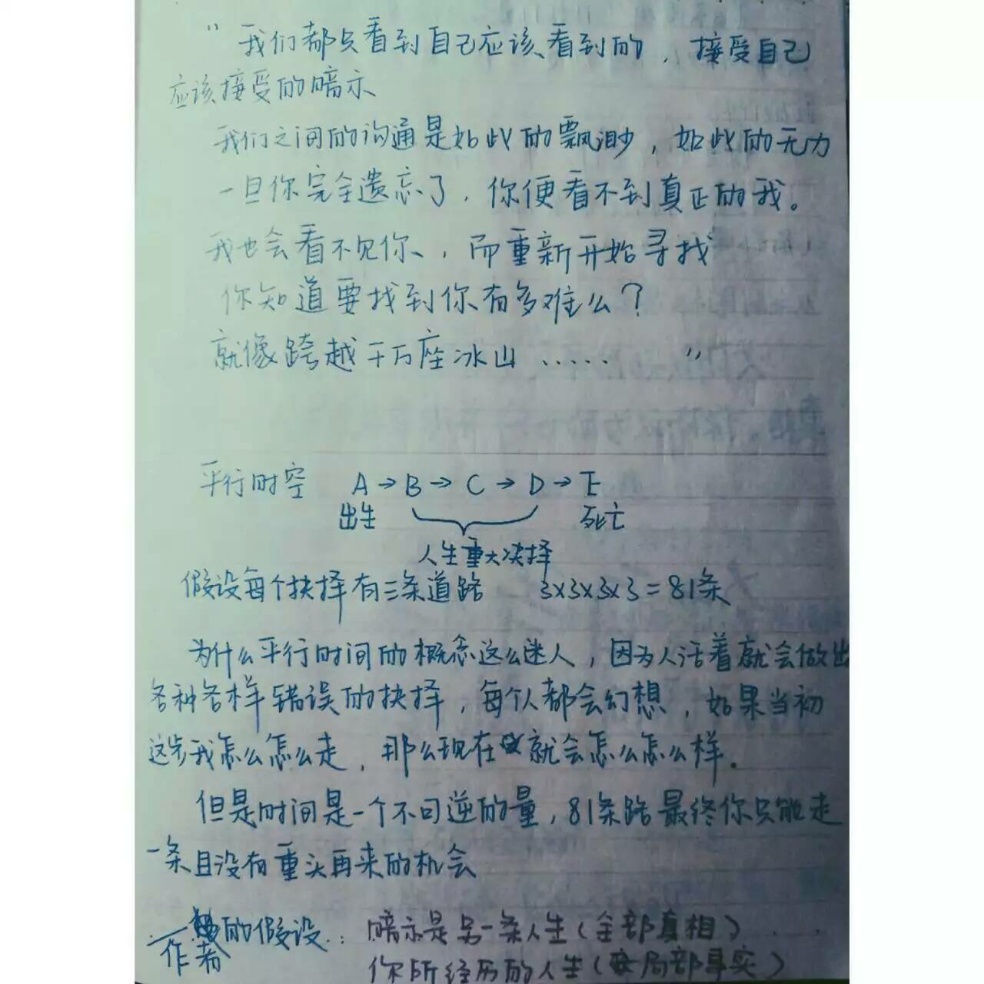 “我们都只看到自己应该看到的，接受自己
应该接受的暗示
我们之间的沟通是如此的飘渺，如此的无力
一旦你完全遗忘了，你便看不到真正的我。
我也会看不见你，而重新开始寻找
你知道要找到你有多难么？
就像跨越千万座冰山……”
平行时空 A→B→C→D→E
出生 死亡
人生重大决择
假设每个抉择有三条道路 3x3x3x3=81条
为什么平行时间的概念这么迷人，因为人活着就会做出
各种各样错误的抉择，每个人都会幻想，如果当初
这步我怎么怎么走，那么现在就会怎么怎么样。
但是时间是一个不可逆的量，81条路最终你只能走
一条且没有重头再来的机会
作者的假设：暗示是另一条人生（全部真相）
你所经历的人生（局部事实）